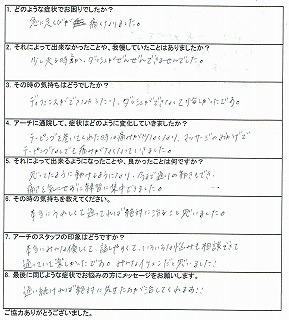 1. どのような症状でお困りでしたか?
急に足くびが痛くなりました。
2. それによって出来なかったことや、我慢していたことはありましたか?
少し走る時間か、ダッシュがぜんぜんできませんでした。
3. その時の気持ちはどうですか?
ができなくてりダッシュができなくて
4. アーチに通院して、症状はどのように変化していきましたか?
テーピングを巻いてくれた時は痛みが少なくなり、マッサージのおかげで
テーピングなしでも痛みがなくなっていきました。
5. それによって出来るようになったことや、良かったことは何ですか?
思ってたように動けるようになり、今まで通りの動きもでき、
痛みを気にせずに練習に集中できました。
6. その時の気持ちを教えてください。
本当にうれしくて通ってれば絶対に治ると思いました。
7. アーチのスタッフの印象はどうですか?
本当にみんな優しくて、話しやすくて、いろいろな悩みも相談できて
通っていて楽しかったです。みんなイケメンだと思いました!
8. 最後に同じような症状でお悩みの方にメッセージをお願いします。
通い続ければ絶対に先生たちが治してくれるよ!!
ご協力ありがとうございました。